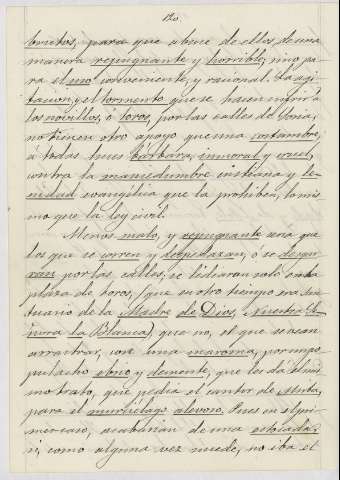 120.
brutos, para que abuse de ellos de una
manera repugnante y horrible, sino pa
ra el uso conveniente, y racional. La agi
tacion, y el tormento que se hacen sufrir á
los novillos, ó toros, por las calles de Soria,
no tienen otro apoyo que una costumbre,
á todas luces bárbara, inmoral y cruel,
contra la mansedumbre cristiana y le
nidad evangélica que la prohiben, lo mis
mo que la ley civil.
Menos malo, y repugnante sería que
los que se corren y despedazan, ó se desga
rran por las calles, se lidiaran solo en la
plaza de toros, (que en otro tiempo era San
tuario de la Madre de Dios, Nuestra Se
ñora la Blanca), que no, el que se vean
arrastrar, con una maroma, por un po
pulacho ebrio y demente, que les dá el mis
mo trato, que pedia el cantor de Mirta,
para el murciélago alevoso. Pues en el pri
mer caso, acabarian de una estocada,
si, como alguna vez sucede, no iba el